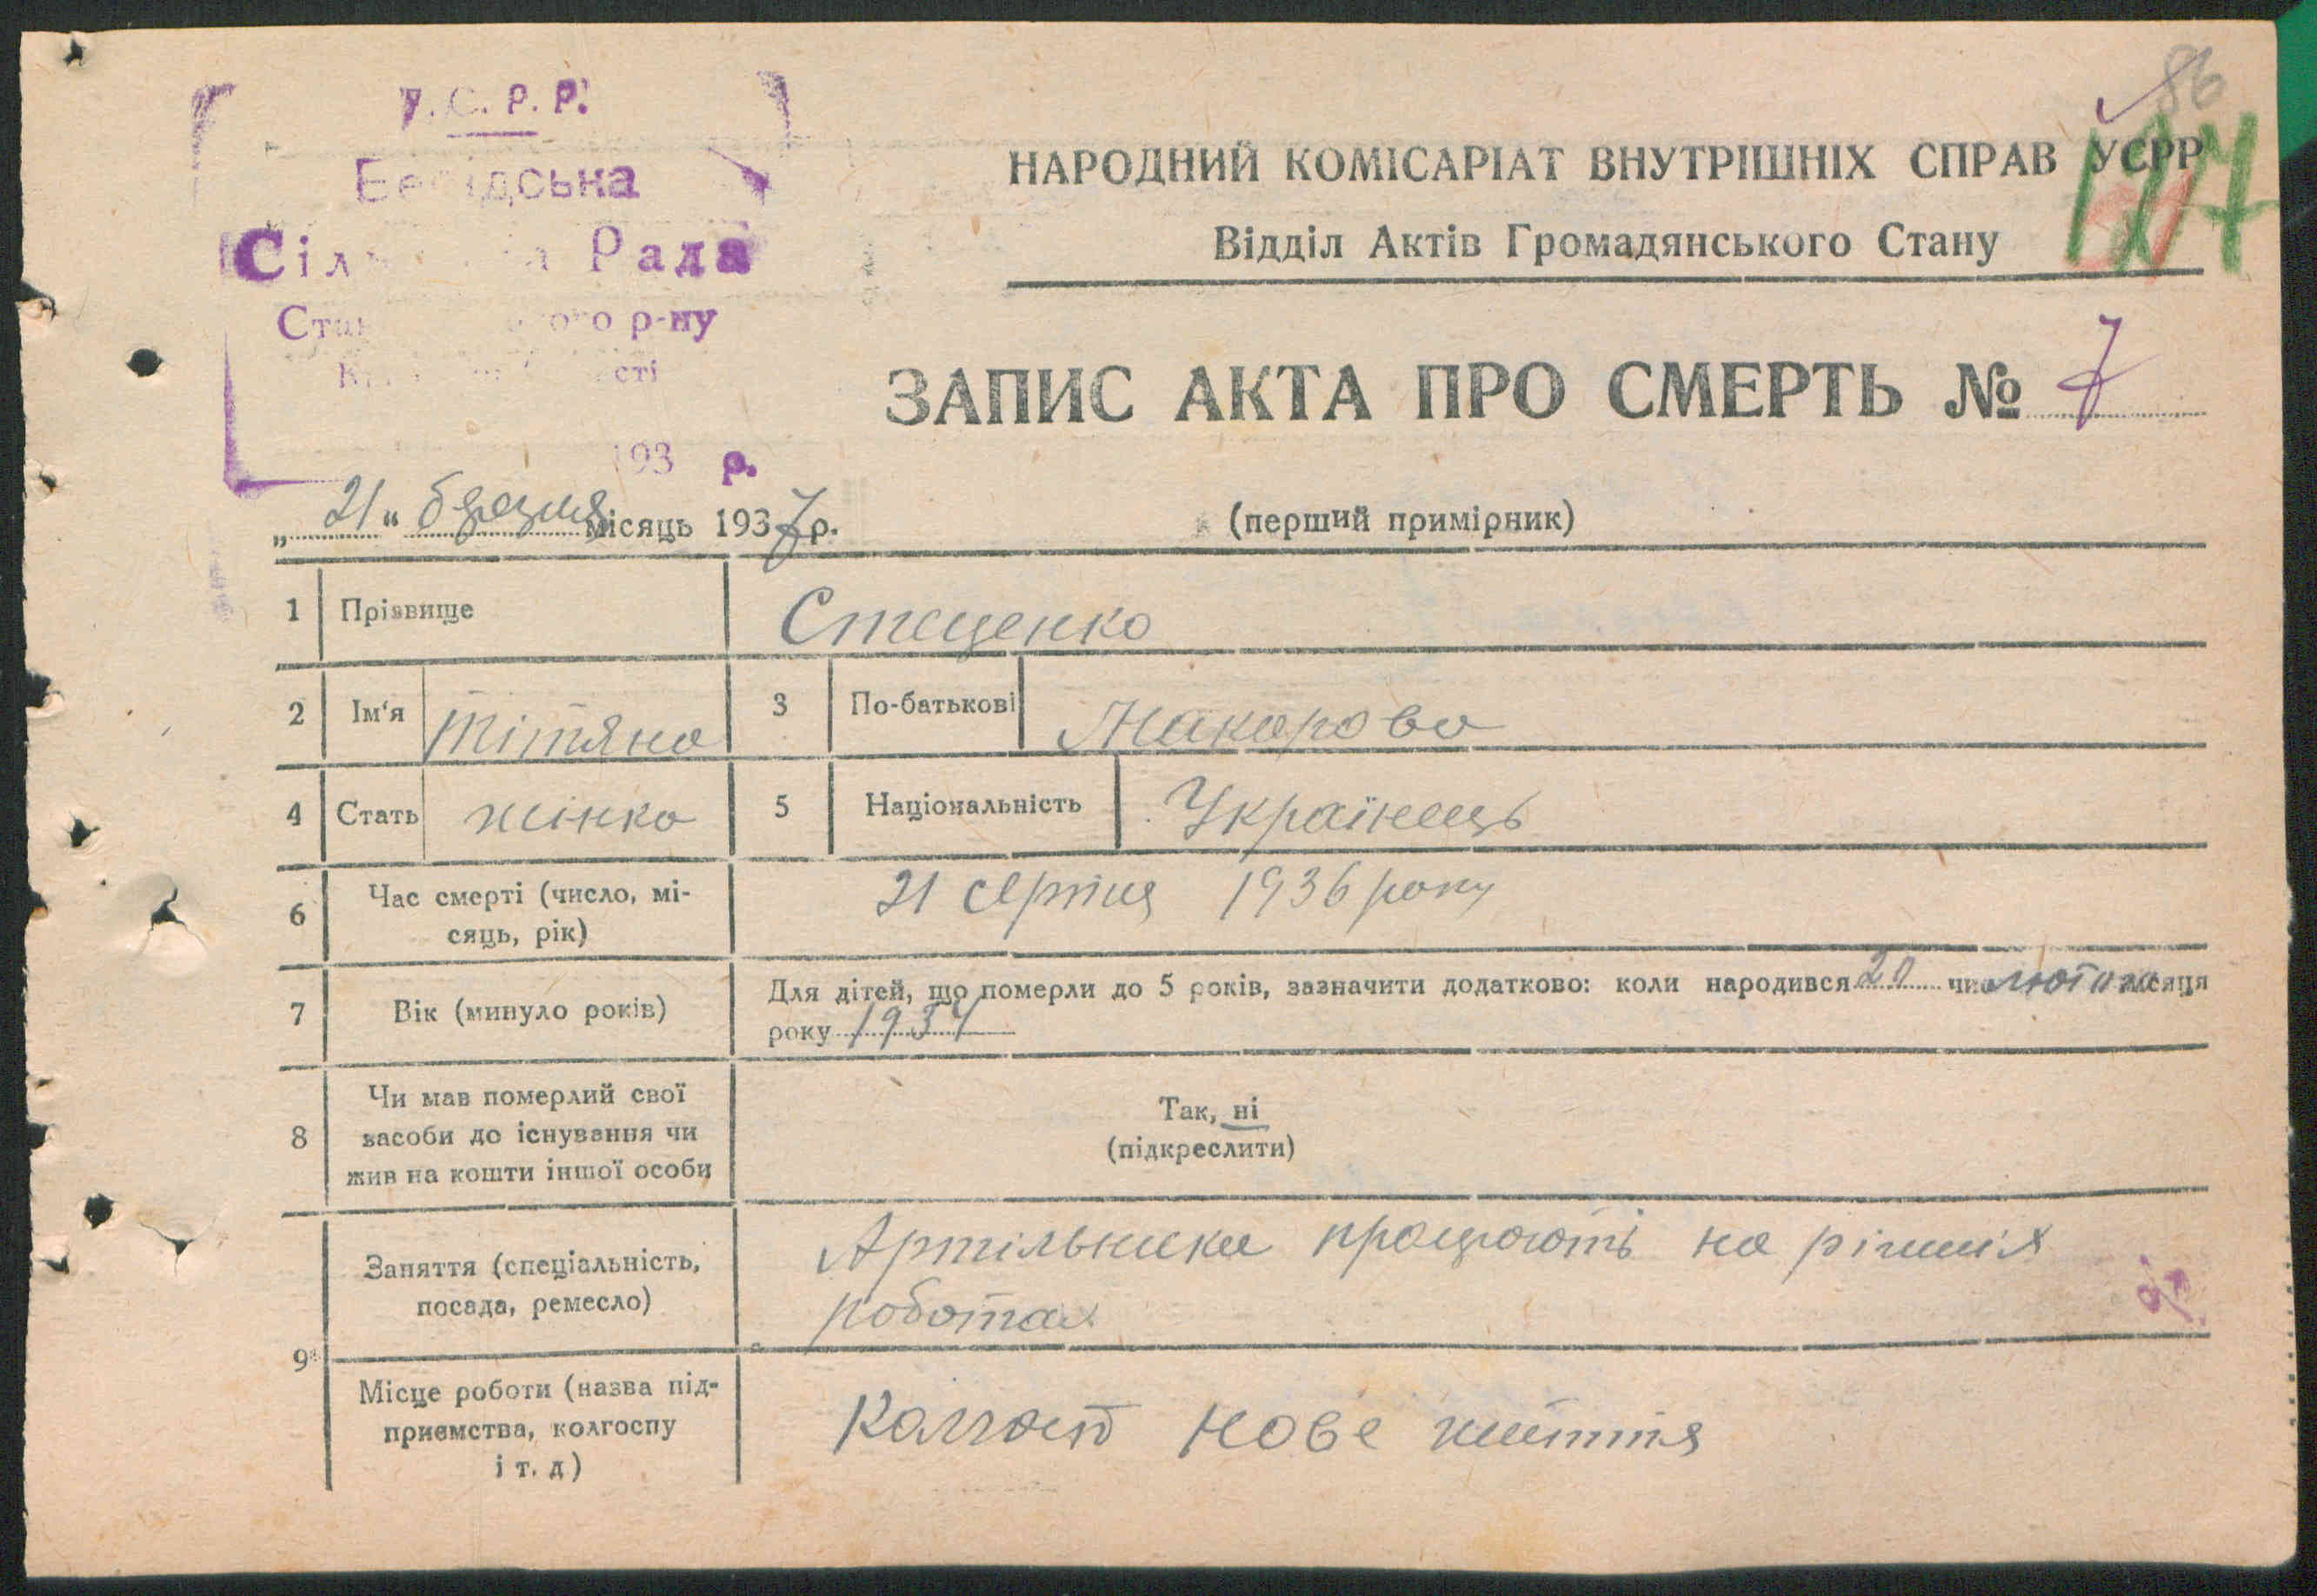 У.С.Р.Р.
Рада
р-ну
193 р.
86
НАРОДНИЙ КОМІСАРІАТ ВНУТРІШНІХ СПРАВ УСРР
Відділ Актів Громадянського Стану
ЗАПИС АКТА ПРО СМЕРТЬ № 7
„21“ березня місяць 1937 р.
(перший примірник)
1 Прізвище Стеценко
2 Ім'я Тітяна 3 По-батькові Макарова
4 Стать жінка 5 Національність Українець
6 Час смерті (число, мі-
сяць, рік) 21 серпня 1936 року
7 Вік (минуло років) Для дітей, що померли до 5 років, зазначити додатково: коли народився 20 чис лютого місяця
року 1934
8 Чи мав померлий свої
засоби до існування чи
жив на кошти іншої особи
Так, ні
(підкреслити)
9 Заняття (спеціальність,
посада, ремесло)
Артільники працюють на різних
роботах
Місце роботи (назва під-
приємства, колгоспу
і т. д)
Колгосп нове життя